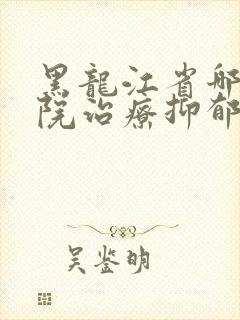 黑龍江省哪
院治療抑郁
吴鉴明